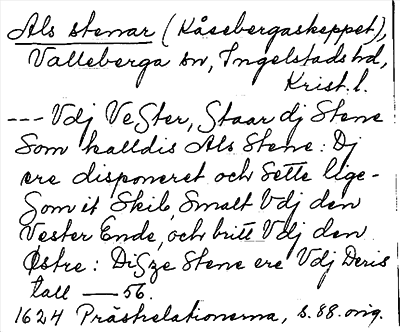 Als stenar (Kåsebergaskeppet),
Valleberga sn, Ingelstads hd,
Krist. l.
--- Vdj VeSter, Staar dj Stene
Som kalldis Als Stene: Dj
ere disponeret och Sette lige-
Som it Skib, Smalt Vdj den
Vester Ende, och britt Vdj den
Østre: DiSze Stene ere Vdj Deris
tall — 56.
1624 Prästrelationerna, s. 88. orig.